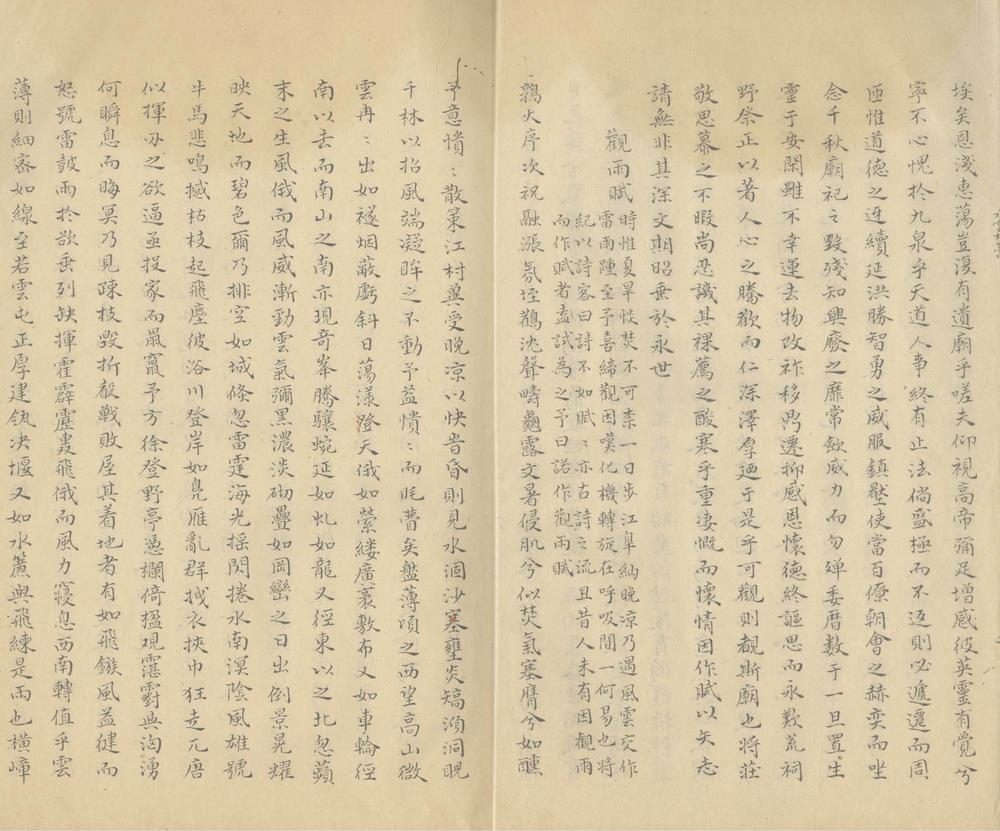 埃矣恩淺惠蕩豈復有遺廟乎嗟夫仰視高帝彌足增感彼英靈有覺兮
寧不心愧於九泉乎天道人事終有止法倘盛極而不返則必遞還而周
匝惟道德之迓續延洪勝智勇之威服鎮壓使當百僚朝會之赫奕而坐
念千秋廟祀之毀殘知興廢之靡常歛威力而勿殫委曆数于一旦置生
靈于安閑雖不幸運去物改祚移鼎遷抑感恩懷德終謳思而永歎荒祠
野祭正以著人心之騰歡而仁深澤厚廼于是乎可觀則覩斯廟也将莊
敬思慕之不暇尚忍譏其祼薦之酸寒乎重凄慨而懷情因作賦以矢志
請無非其深文期昭垂於永世
觀雨賦
時惟夏旱惔焚不可柰一日步江臯納晚涼乃遇風雲交作
雷雨踵至予喜締觀因嘆化機轉旋在呼吸間一何易也将
紀以詩客曰詩不如賦賦亦古詩之流且昔人未有因觀雨
而作賦者盍試為之予曰諾作觀雨賦
鶉火序次祝融漲氛垤鸛沈聲疇龜露文暑侵肌兮似焚氣塞膺兮如醺
予意憒〻散策江村兾受晚凉以快昝昏則見水涸沙塞壅炎熇澒洞睨
千林以招風端凝眸之不動予益憒〻而眊瞢矣盤薄頃之西望高山微
雲冉〻出如襚烟蔽虧斜日蕩漾澄天俄如縈縷廣袤敷布又如車輪徑
南以去而南山之南亦現奇峯騰驤蜿延如虬如龍又徑東以之北忽蘋
末之生風俄而風威漸勁雲氣彌黑濃淡砌疊如岡巒之日出倒景晃耀
映天地而碧色爾乃排空如城倏忽雷霆海光採閃捲水南溟陰風雄號
牛馬悲鳴撼枯枝起飛塵彼浴川登岸如鳧雁亂群拭衣挾巾狂走亢唐
似揮刃之欲逼亟投家而鼠竄予方徐登野亭憑欄倚楹观霮䨴與洶湧
何瞬息而晦冥乃見陳枝毀折殽戰敗屋其着地者有如飛鏃風益徤而
怒號雷皷雨於欲垂列缺揮霍霹靂轟飛俄而風力寢息西南轉值乎雲
薄則細密如線至若雲屯正厚建瓴决堰又如水簾與飛練是雨也橫嶂